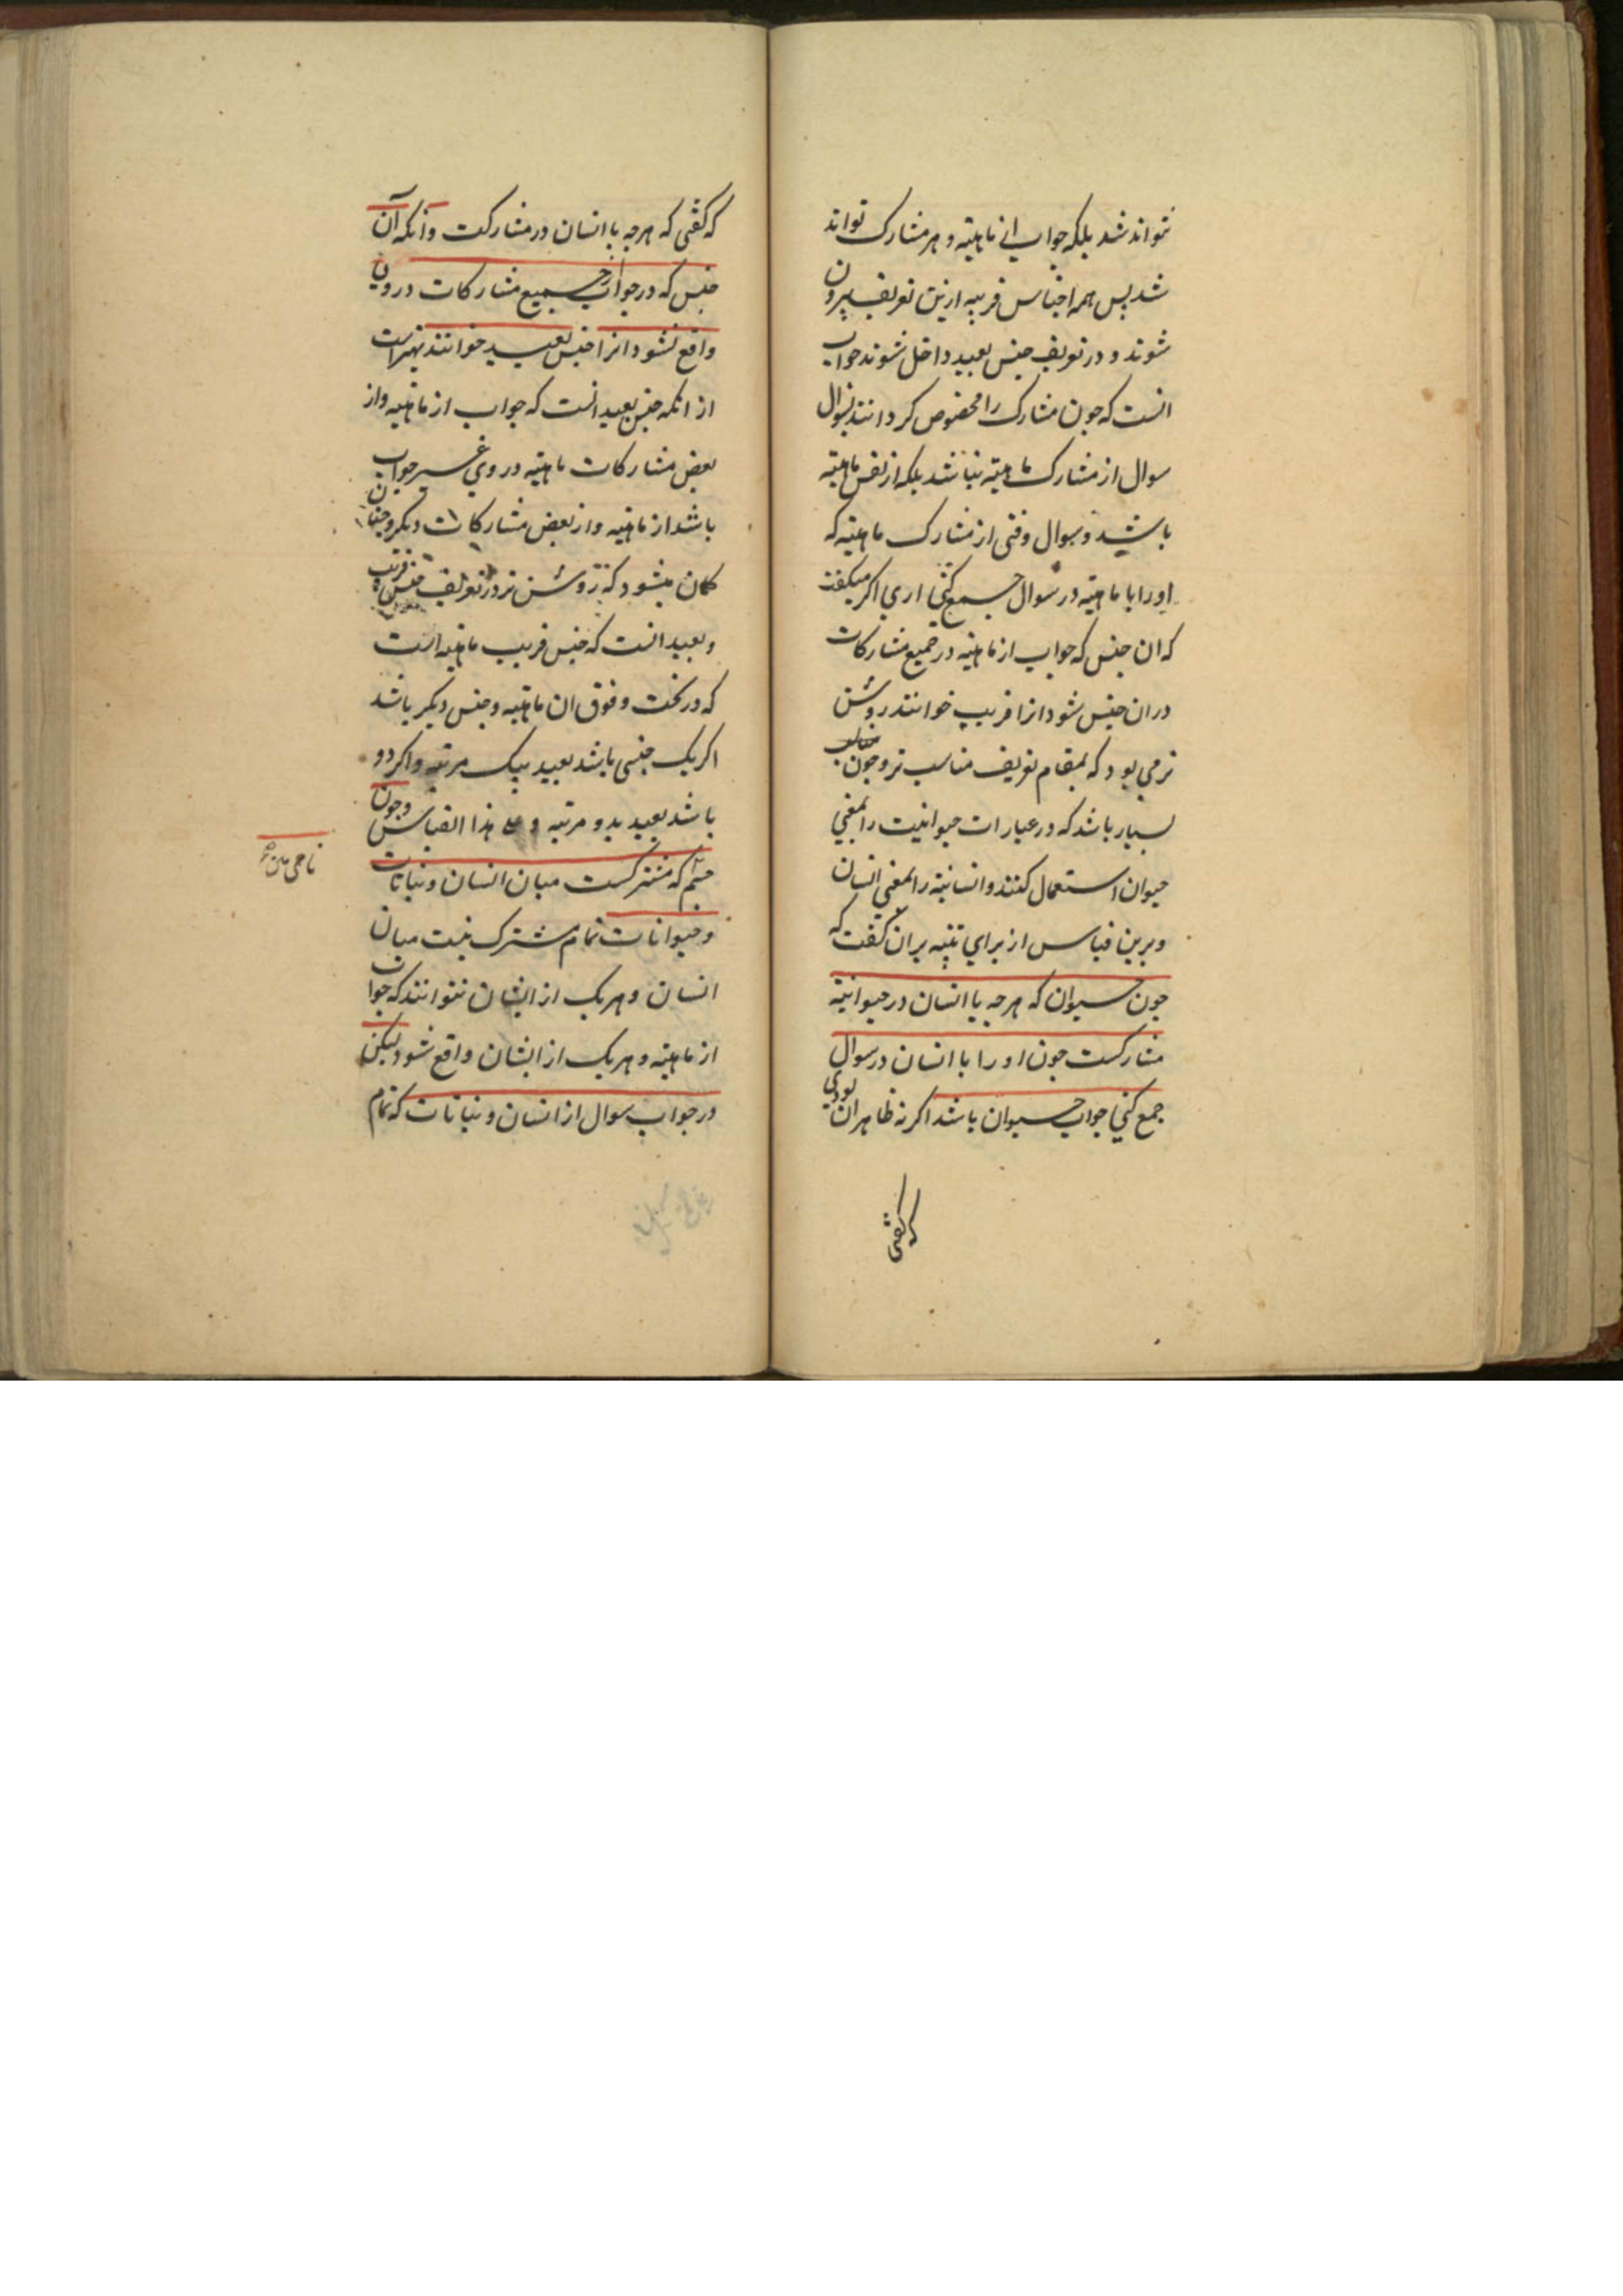 نتواند شد بلکه جواب از ماهیته و هر مشارک تواند
شد پس همه اجناس قریبه ازین تعریف بیرون
شوند و در تعریف جنس بعید داخل شوند جواب
انست که چون مشارک را مخصوص کردانند بسوال
سوال از مشارک ماهیته نباشد بلکه از نفس ماهیته
باشد و سوال وقتی از مشارک ماهیته که
اورا با ماهیته در سوال جمع کنی اری اکر میکفت
که ان جنس که جواب از ماهیته در جمیع مشارکات
دران جنس شود انرا قریب خوانند روشن
تر می بود که بمقام تعریف مناسب تر و چون متعارف
بسیار باشد که در عبارات حیوانیت را بمعنی
حیوان استعمال کنند و انسانیته را بمعنی انسان
و برین قیاس از برای تنبیه بران کفت که
چون حیوان که هرچه با انسان در حیوانیته
مشارکست چون او را با انسان در سوال
جمع کنی جواب حیوان باشد اکر نه ظاهر ان بودی
که کفتی
که کفتی که هرچه با انسان در مشارکت و انکه آن
جنس که در جواب از جمیع مشارکات در وی
واقع نشود انرا جنس بعید خوانند بهتر است
از انکه جنس بعید انست که جواب از ماهیته و از
بعض مشارکات ماهیته در وی غیر جواب
باشد از ماهیته و از بعض مشارکات دیکر و چنان
کمان میشود که روشن تر در تعریف جنس قریب
و بعید انست که جنس قریب ماهیته است
که در تحت و فوق ان ماهیته و جنس دیکر باشد
اکر یک جنسی باشد بعید بیک مرتبه و اکر دو
باشد بعید بدو مرتبه و علی هذا القیاس و چون
جسم که مشترکست میان انسان و نباتات
و حیوانات تمام مشترک نیست میان
انسان و هر یک از ایشان نتوانند که جواب
از ماهیته و هر یک از ایشان واقع شود لیکن
در جواب سوال از انسان و نباتات که تمام